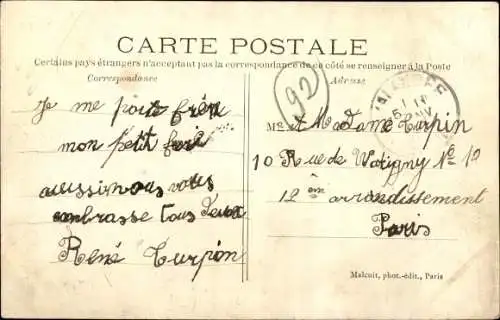 CARTE POSTALE
Certains pays étrangers n'acceptant pas la correspondance de ce côté se renseigner à la Poste
Correspondance
Adresse
92
Je me porte
mon petit
aussi nous vous
embrasse tous
René Turpin
A Madame Turpin
10 Rue de Watigny No 10
12 ème arrondissement
Paris
Malcuit, phot.-édit., Paris